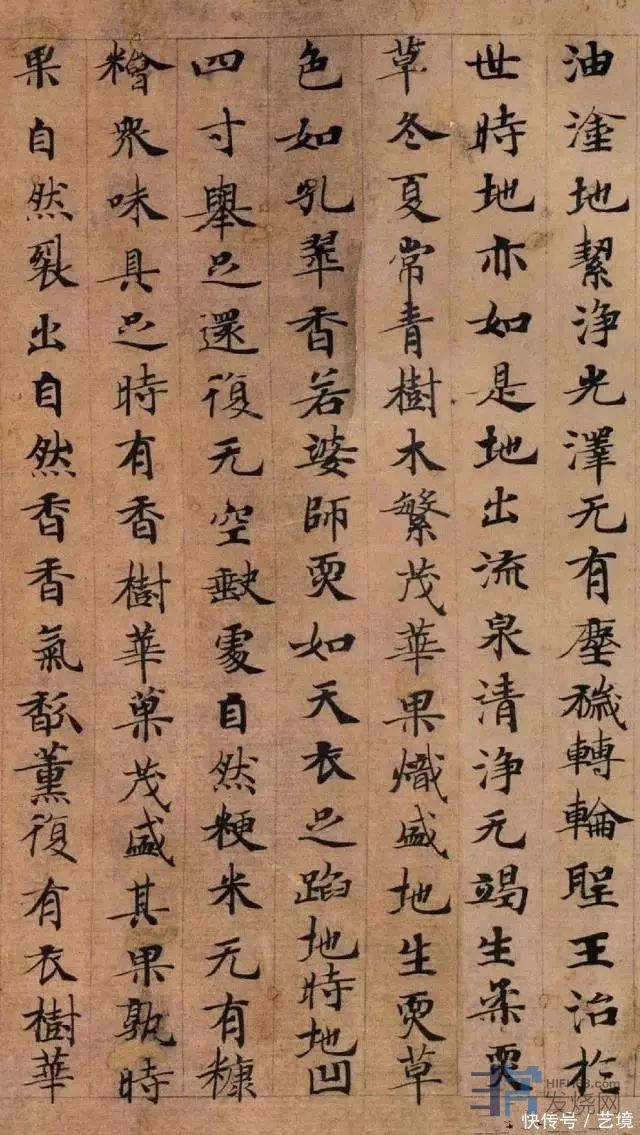 油塗地絜浄光澤无有塵穢轉輪聖王治於
世時地亦如是地出流泉清浄无竭生柔耎
草冬夏常青樹木繁茂華果熾盛地生耎草
色如孔翠香若婆師耎如天衣足蹈地時地凹
四寸舉足還復无空缺處自然粳米无有糠
糩衆味具足時有香樹華菓茂盛其果孰時
果自然裂出自然香香氣馚薰復有衣樹華
发烧网
快传号 / 艺境